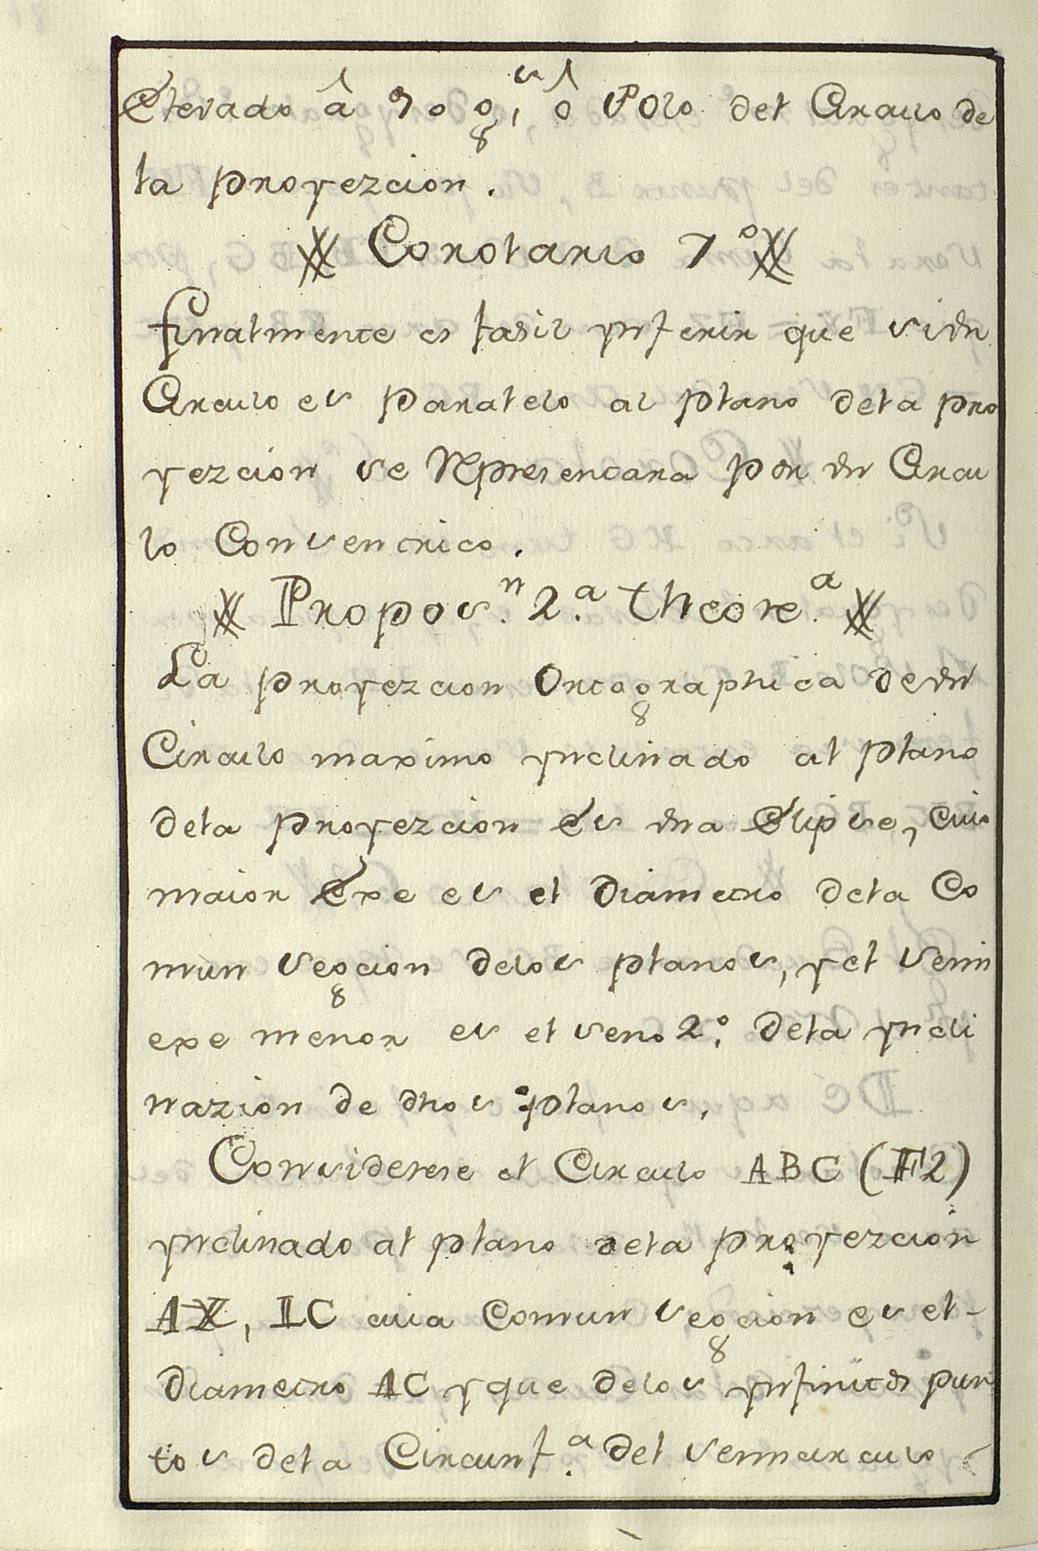 Elevado â 90 g,s ô Polo del Circulo de
la proyezcion.
Corolario 7º
finalmente es fasil ynferir que si un
Circulo es paralelo al plano dela pro
yezcion se Representara por un Circu
lo Consentrico.
Propos.n 2.a Theore.a
La proyezcion Ortographica de un
Circulo maximo ynclinado al plano
dela proyezcion Es una Elipse, cuio
maior Exe es el Diametro dela Co
mun segcion delos planos, y el semi
exe menor es el seno 2.º dela yncli
nazion de dhos planos.
Considerese el Circulo ABC (F2)
ynclinado al plano dela proyezcion
AX, IC cuia Comun segcion es el-
Diametro AC y que delos ynfinitos pun
tos dela Circunf.a del semicirculo